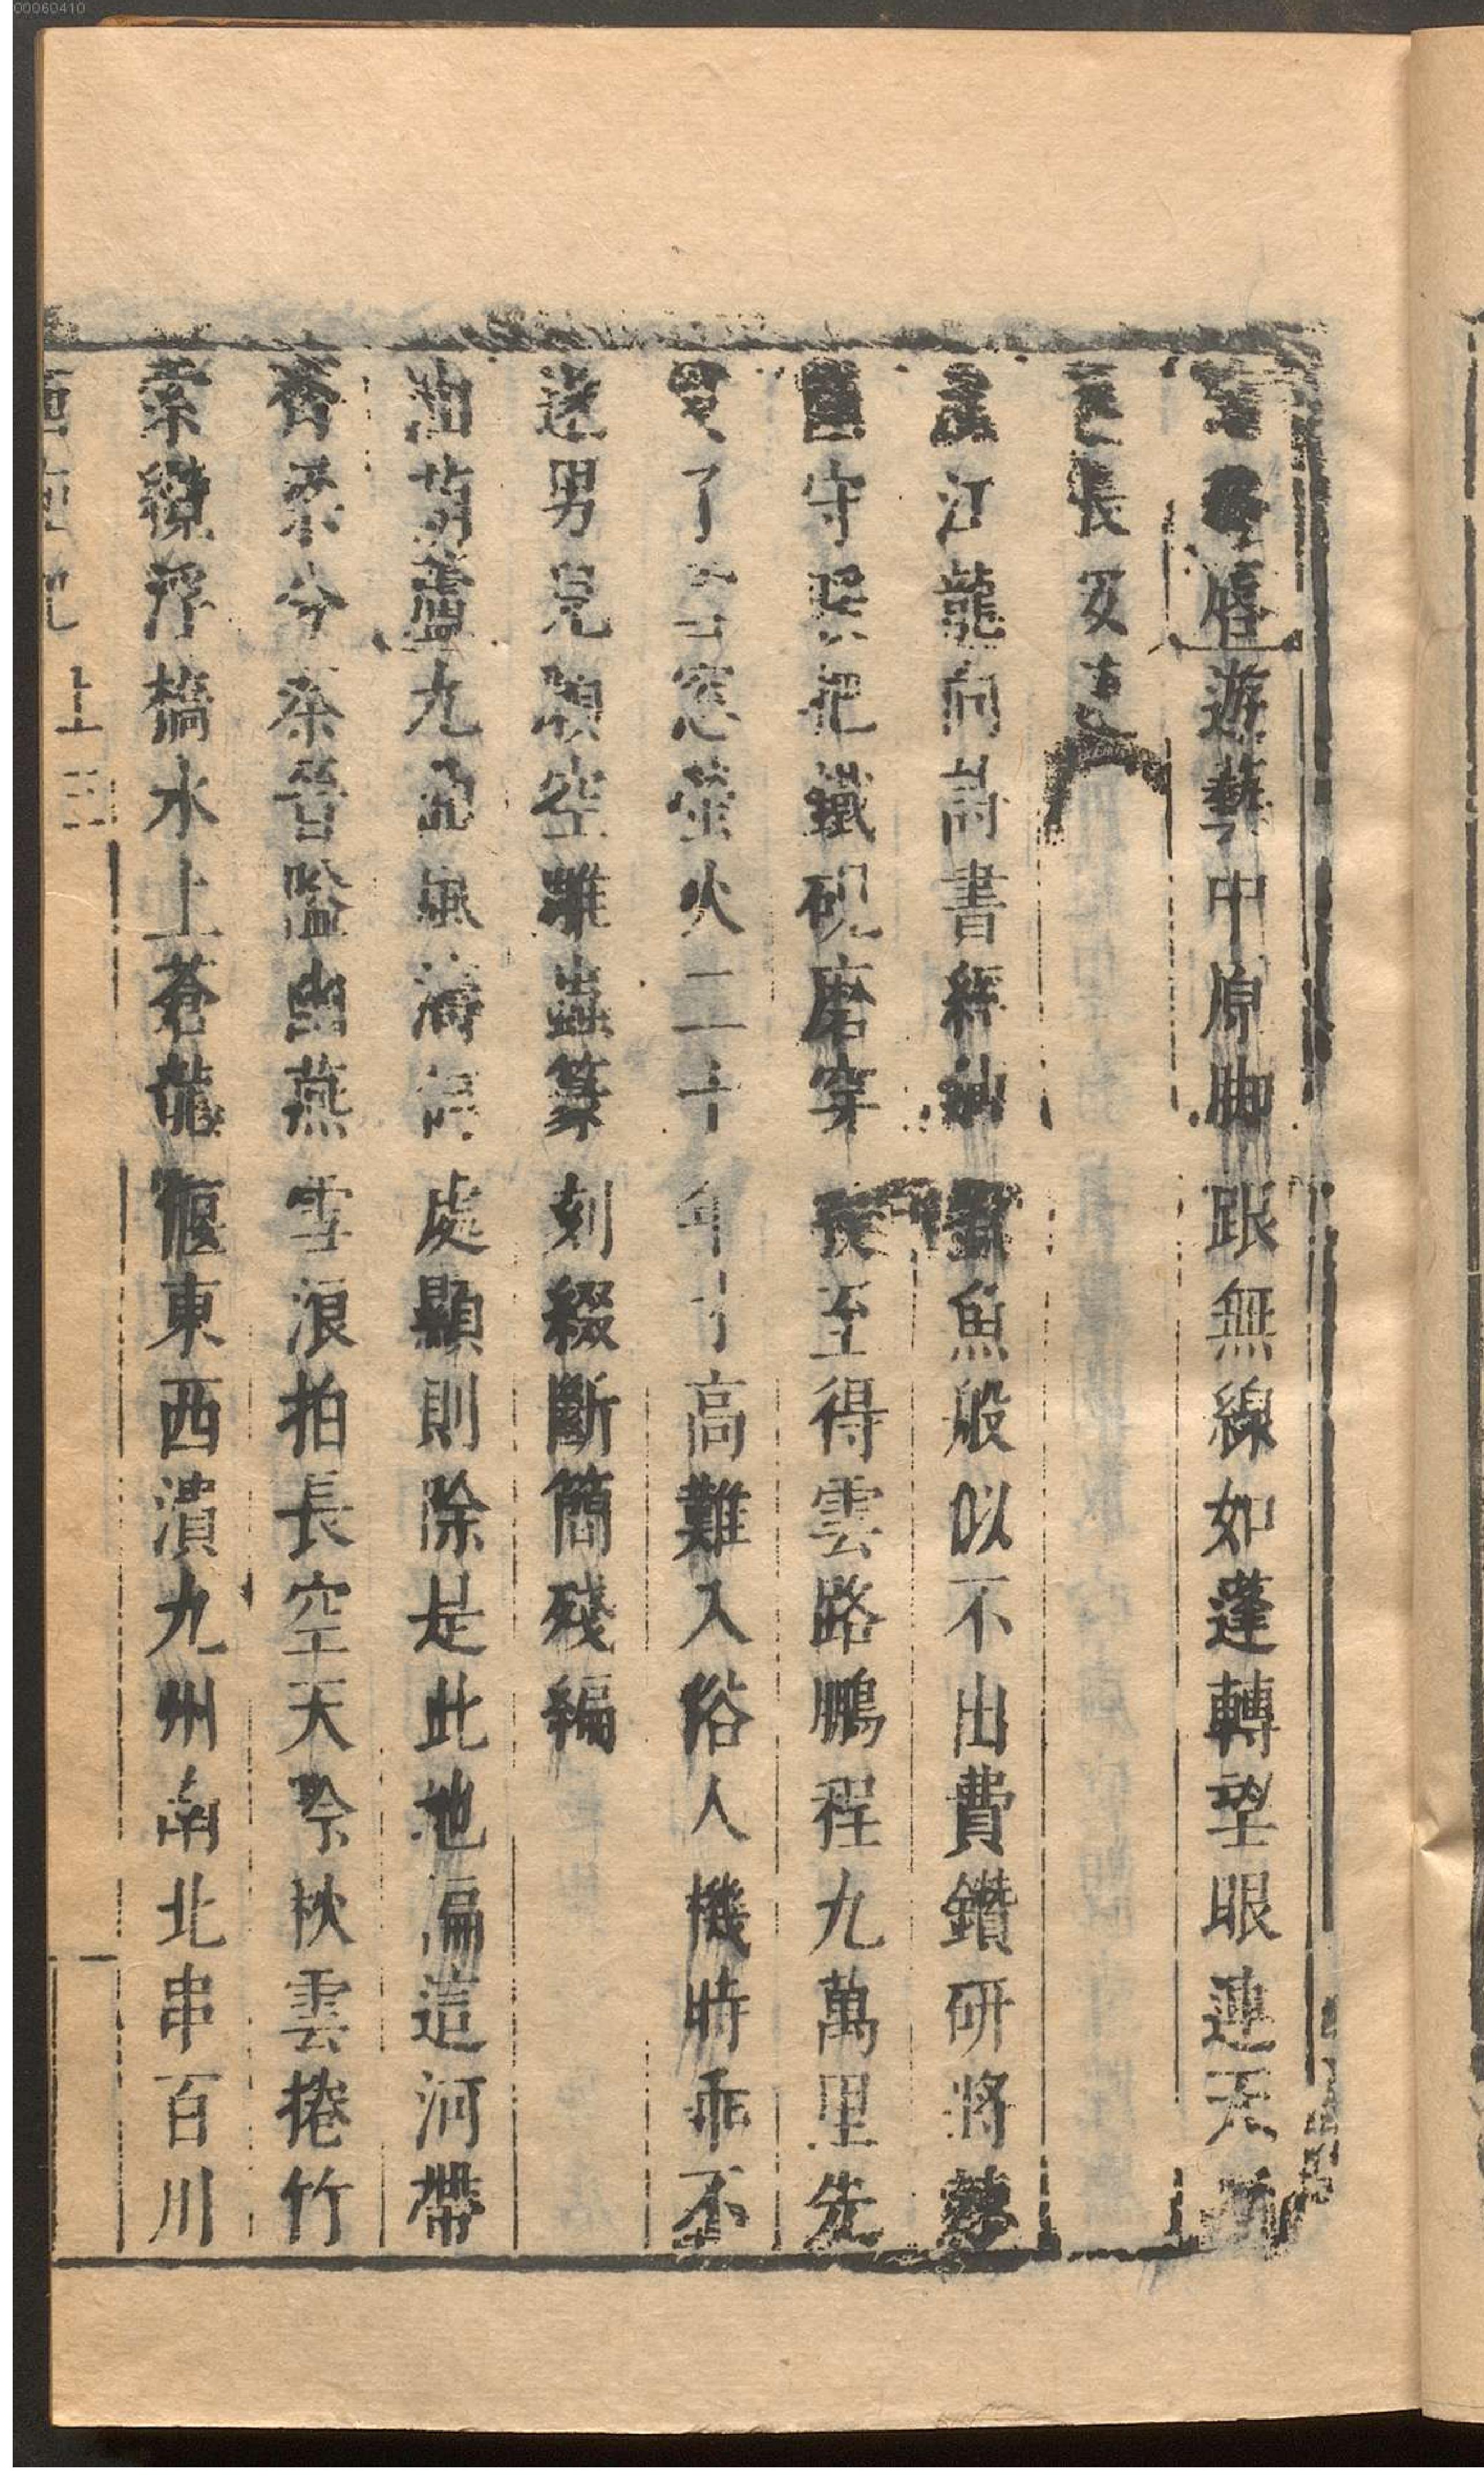 遊藝中原脚跟無線如蓬轉望眼連天
長安
江龍向詩書經傳蠹魚般似不出費鑽研將棘
圍守暖把鐵硯磨穿投至得雲路鵬程九萬里先
受了雪窓螢火二十年才高難入俗人機時乖不
遂男兒願空雕蟲篆刻綴斷簡殘編
油葫蘆九曲風濤何處顯則除是此地偏這河帶
齊梁分秦晉隘幽燕雪浪拍長空天際秋雲捲竹
索纜浮橋水上蒼龍偃東西潰九州南北串百川
上 三
00060410